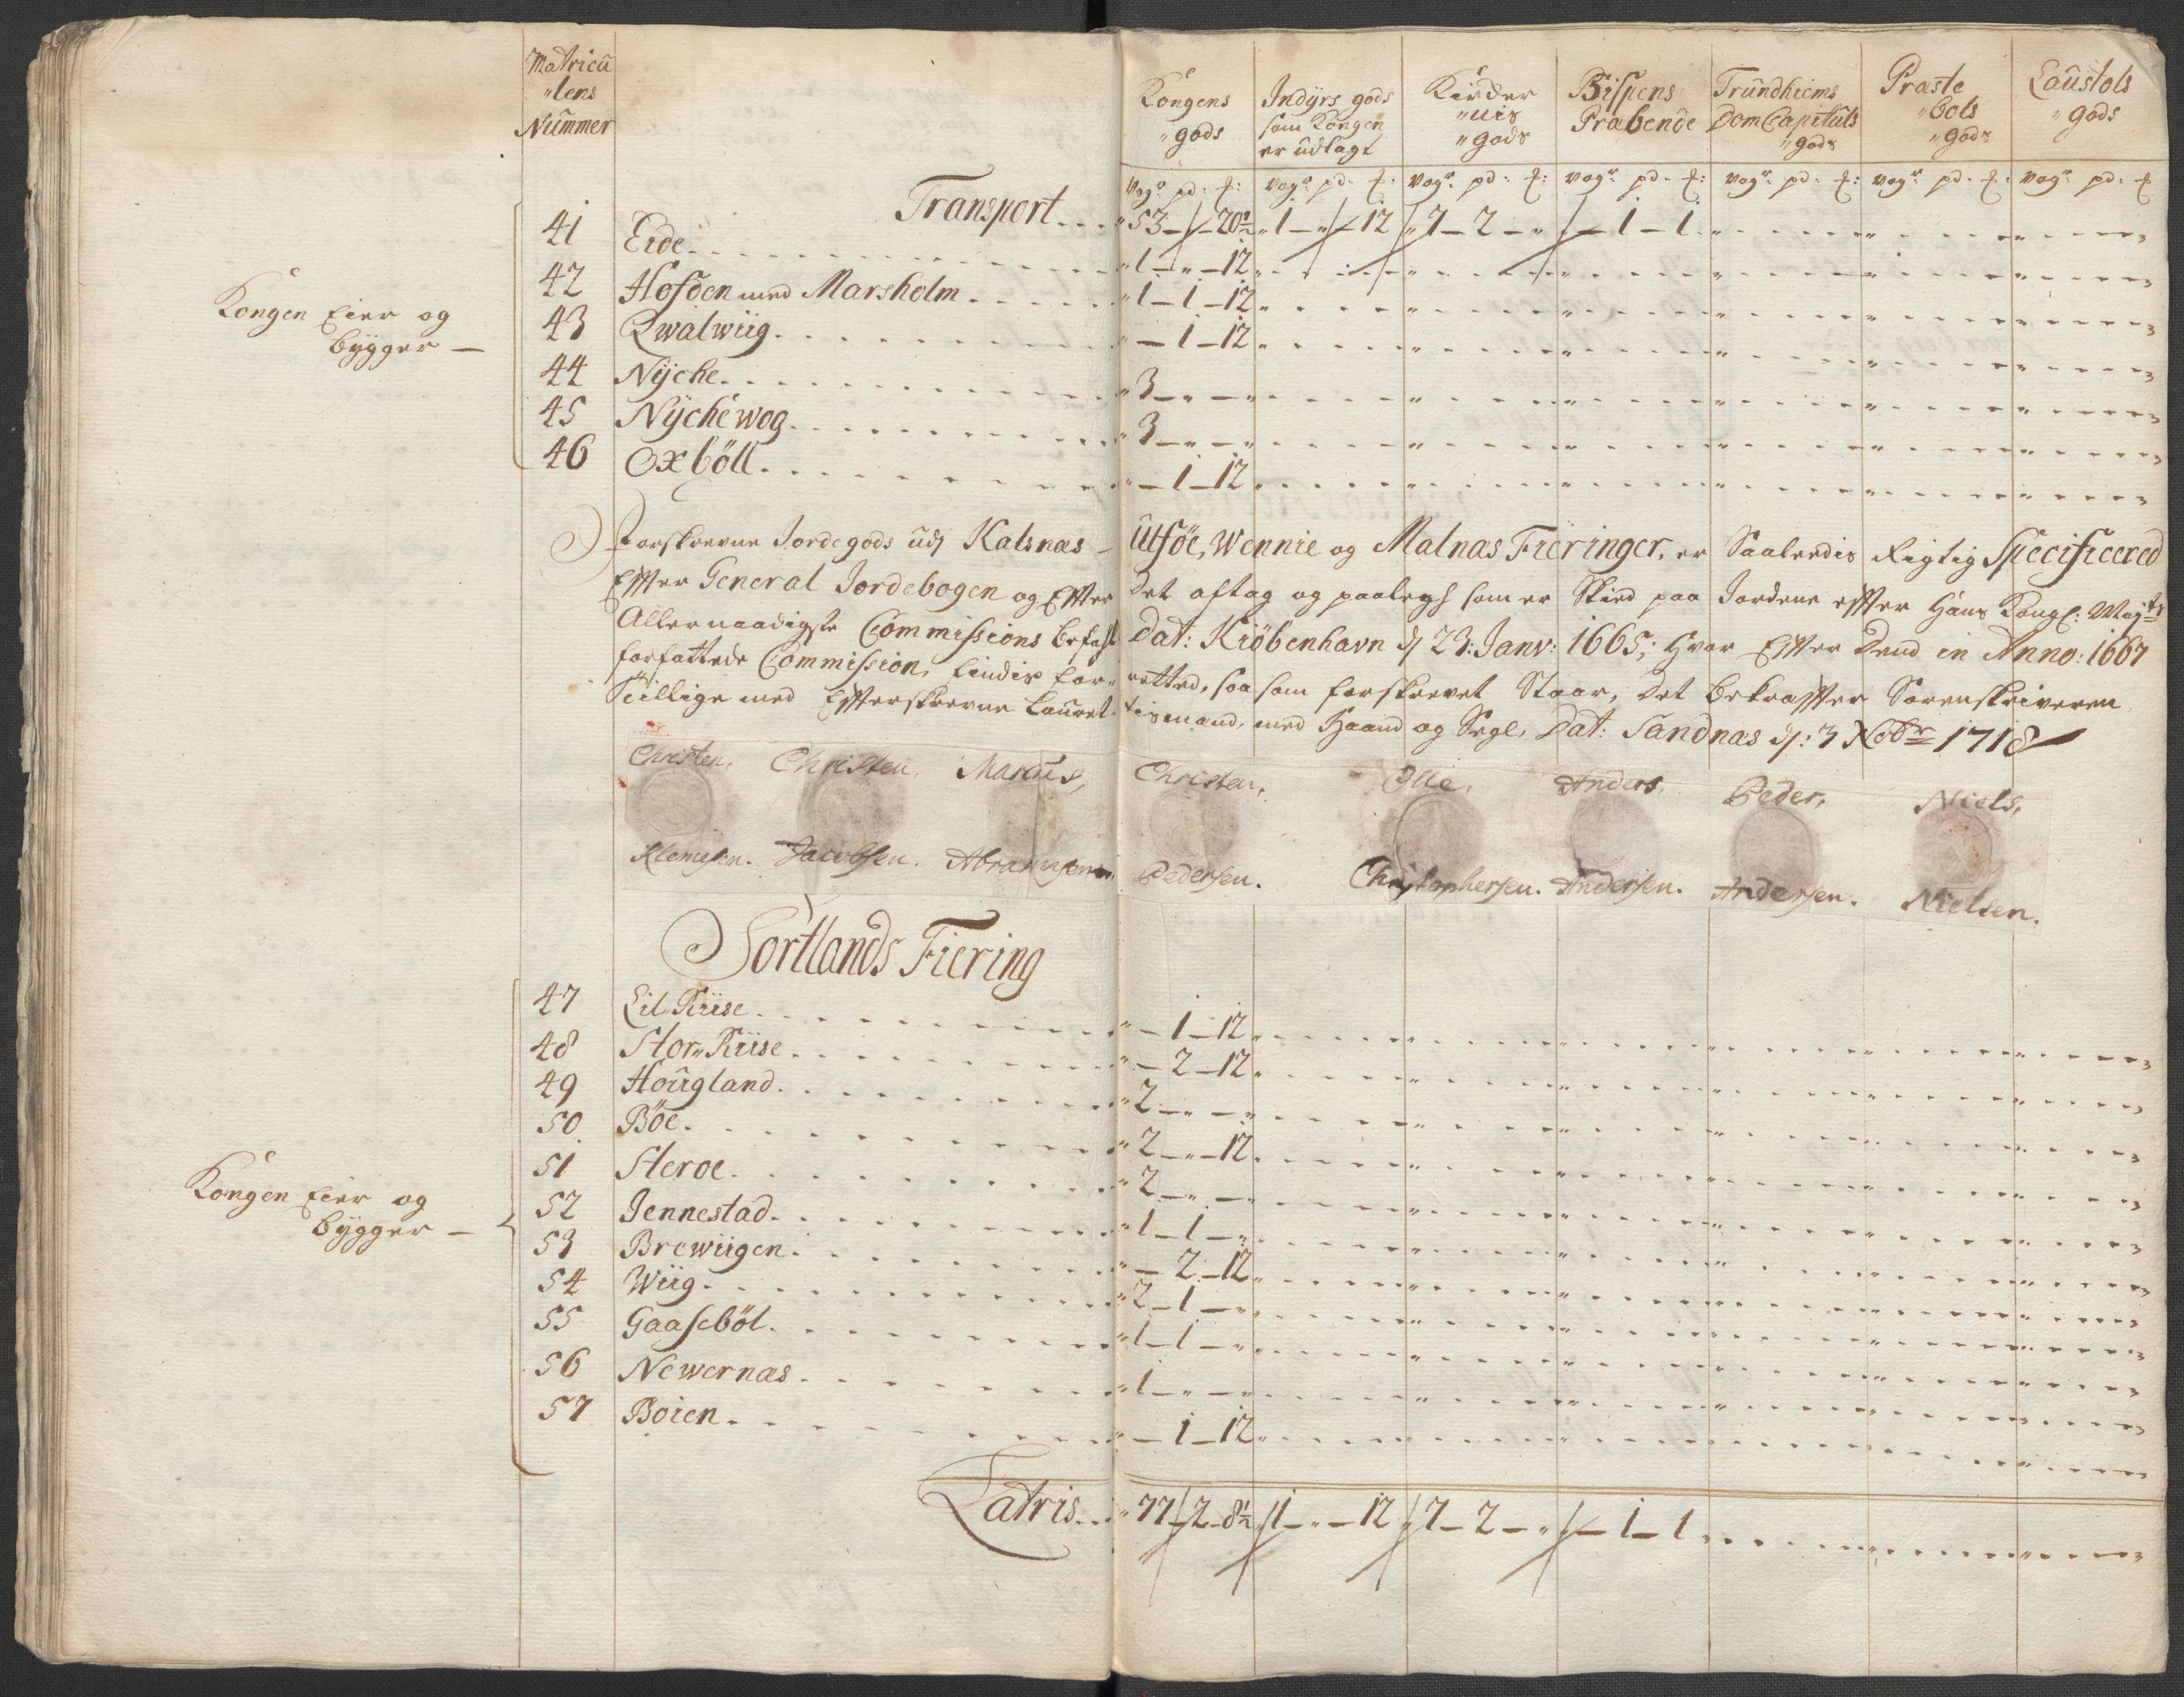 Matricu
"lens
Nummer
Kongens
"gods
Indÿrs gods
som Kongen
er udlagt
Kircker
"nis
"gods
Bispens
Præbende
Trundhiems
Dom Capituls
"gods
Præste
"bols
"gods
Laustols
"gods
Vog^r pd: ℔: vog^r pd: ℔: vog^r pd: ℔: vog^r pd: ℔: vog^r pd: ℔: vog^r pd: ℔: vog^r pd: ℔
Transport . . . " 53 — / — 20½ " 1 — " — 12 " 7 — 2 — " — 1 — 1
Kongen Eier og
bÿgger —
41 Eide " 1 — " — 12
42 Hofden med Marsholm " 1 — 1 — 12
43 Qwalwiig " — 1 — 12
44 Nÿche " 3 — " — "
45 Nÿchewog " 3 — " — "
46 Oxböll " — 1 — 12
Forskrevne Jordegods udj Kalsnæs – Utföe, Wennie og Malnæs Fieringer, er Saaleedis Rigtig Specificered
Effter General Jordebogen og Effter Det aftag og paalegh som er Skied paa Jordene effter Hans Kongl: May^ts
Allernaadigste Commissions befahl Dat: Kiöbenhavn d/ 23: Janv: 1665; Hvor Effter Dend in Anno: 1667
forfattede Commission, findis for- retted, saa som forskrevet Staar, Det bekræffter Sorenskriveren
tillige med Effterskrevne Lauret- tismænd, med Haand og Segl, Dat: Sandnæs d/: 3 Nob^r 1718
Christen, Christen, Marcus, Christen, Olle, Anders, Peder, Niels,
Klemesen. Jacobsen. Abrahamsen. Pedersen. Christophersen. Andersen. Andersen. Nielsen.
Sortlands Fiering
Kongen Eier og
bÿgger —
47 Lil Riise " — 1 — 12
48 Stor" Riise " — 2 — 12
49 Hougland " 2 — " — "
50 Böe " 2 — " — 12
51 Steroe " 2 — " — "
52 Jennestad " 1 — 1 — "
53 Brewiigen " — 2 — 12
54 Wiig " 2 — 1 — "
55 Gaaseböl " 1 — 1 — "
56 Newernæs " 1 — " — "
57 Boien " — 1 — 12
Latris . . . " 77 — 2 — 8½ " 1 — " — 12 " 7 — 2 — " — 1 — 1